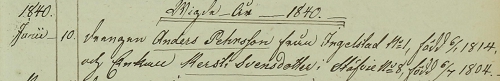 1840. Wigde År 1840.
Junii 10. Drengen Anders Pehrsson från Ingelstad No 1, född 6/1 1814.
och Enkan Kersti Svensdotter i No 8, född 6/7 1804.